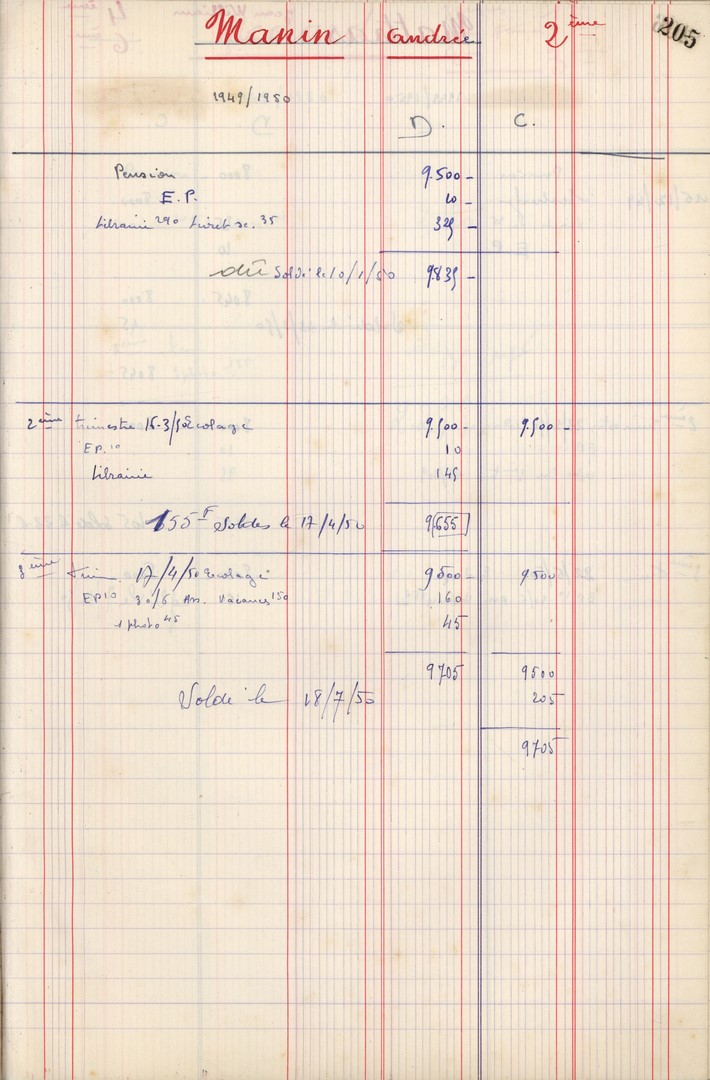 205
Manin André 2ème
1949/1950
D. C.
Pension 9.500 -
E.P. 10 -
Librairie 290 Livret sc. 35 325 -
dû Soldé le 10/1/50 9835 -
2ème trimestre 16-3/50 Ecolage 9.500 - 9.500 -
EP. 10 10
Librairie 145
155 F Soldés le 17/4/50 9655
3ème Trim. 17/4/50 Ecolage 9500 - 9500
EP 10 30/6 Ass. Vacances 150 160
1 photo 45 45
9705 9500
Soldé le 18/7/50 205
9705